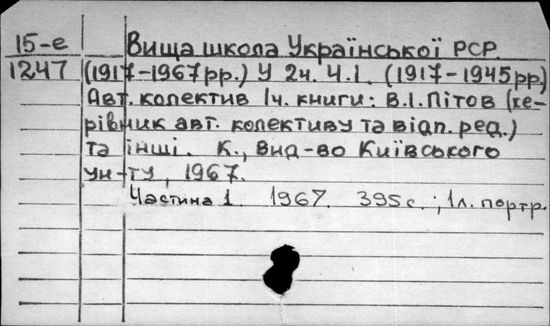 15-е Вища школа Української РСР
1247 (1917-1967рр.) У 2ч. Ч.1. (1917-1945рр)
Авт. колектив 1ч. книги: В.І.Пітов (ке-
рівник авт. колективу та відп. ред.)
та інші. К., Вид-во Київського
ун-ту, 1967.
Частина 1. 1967. 395с.; 1л. портр.